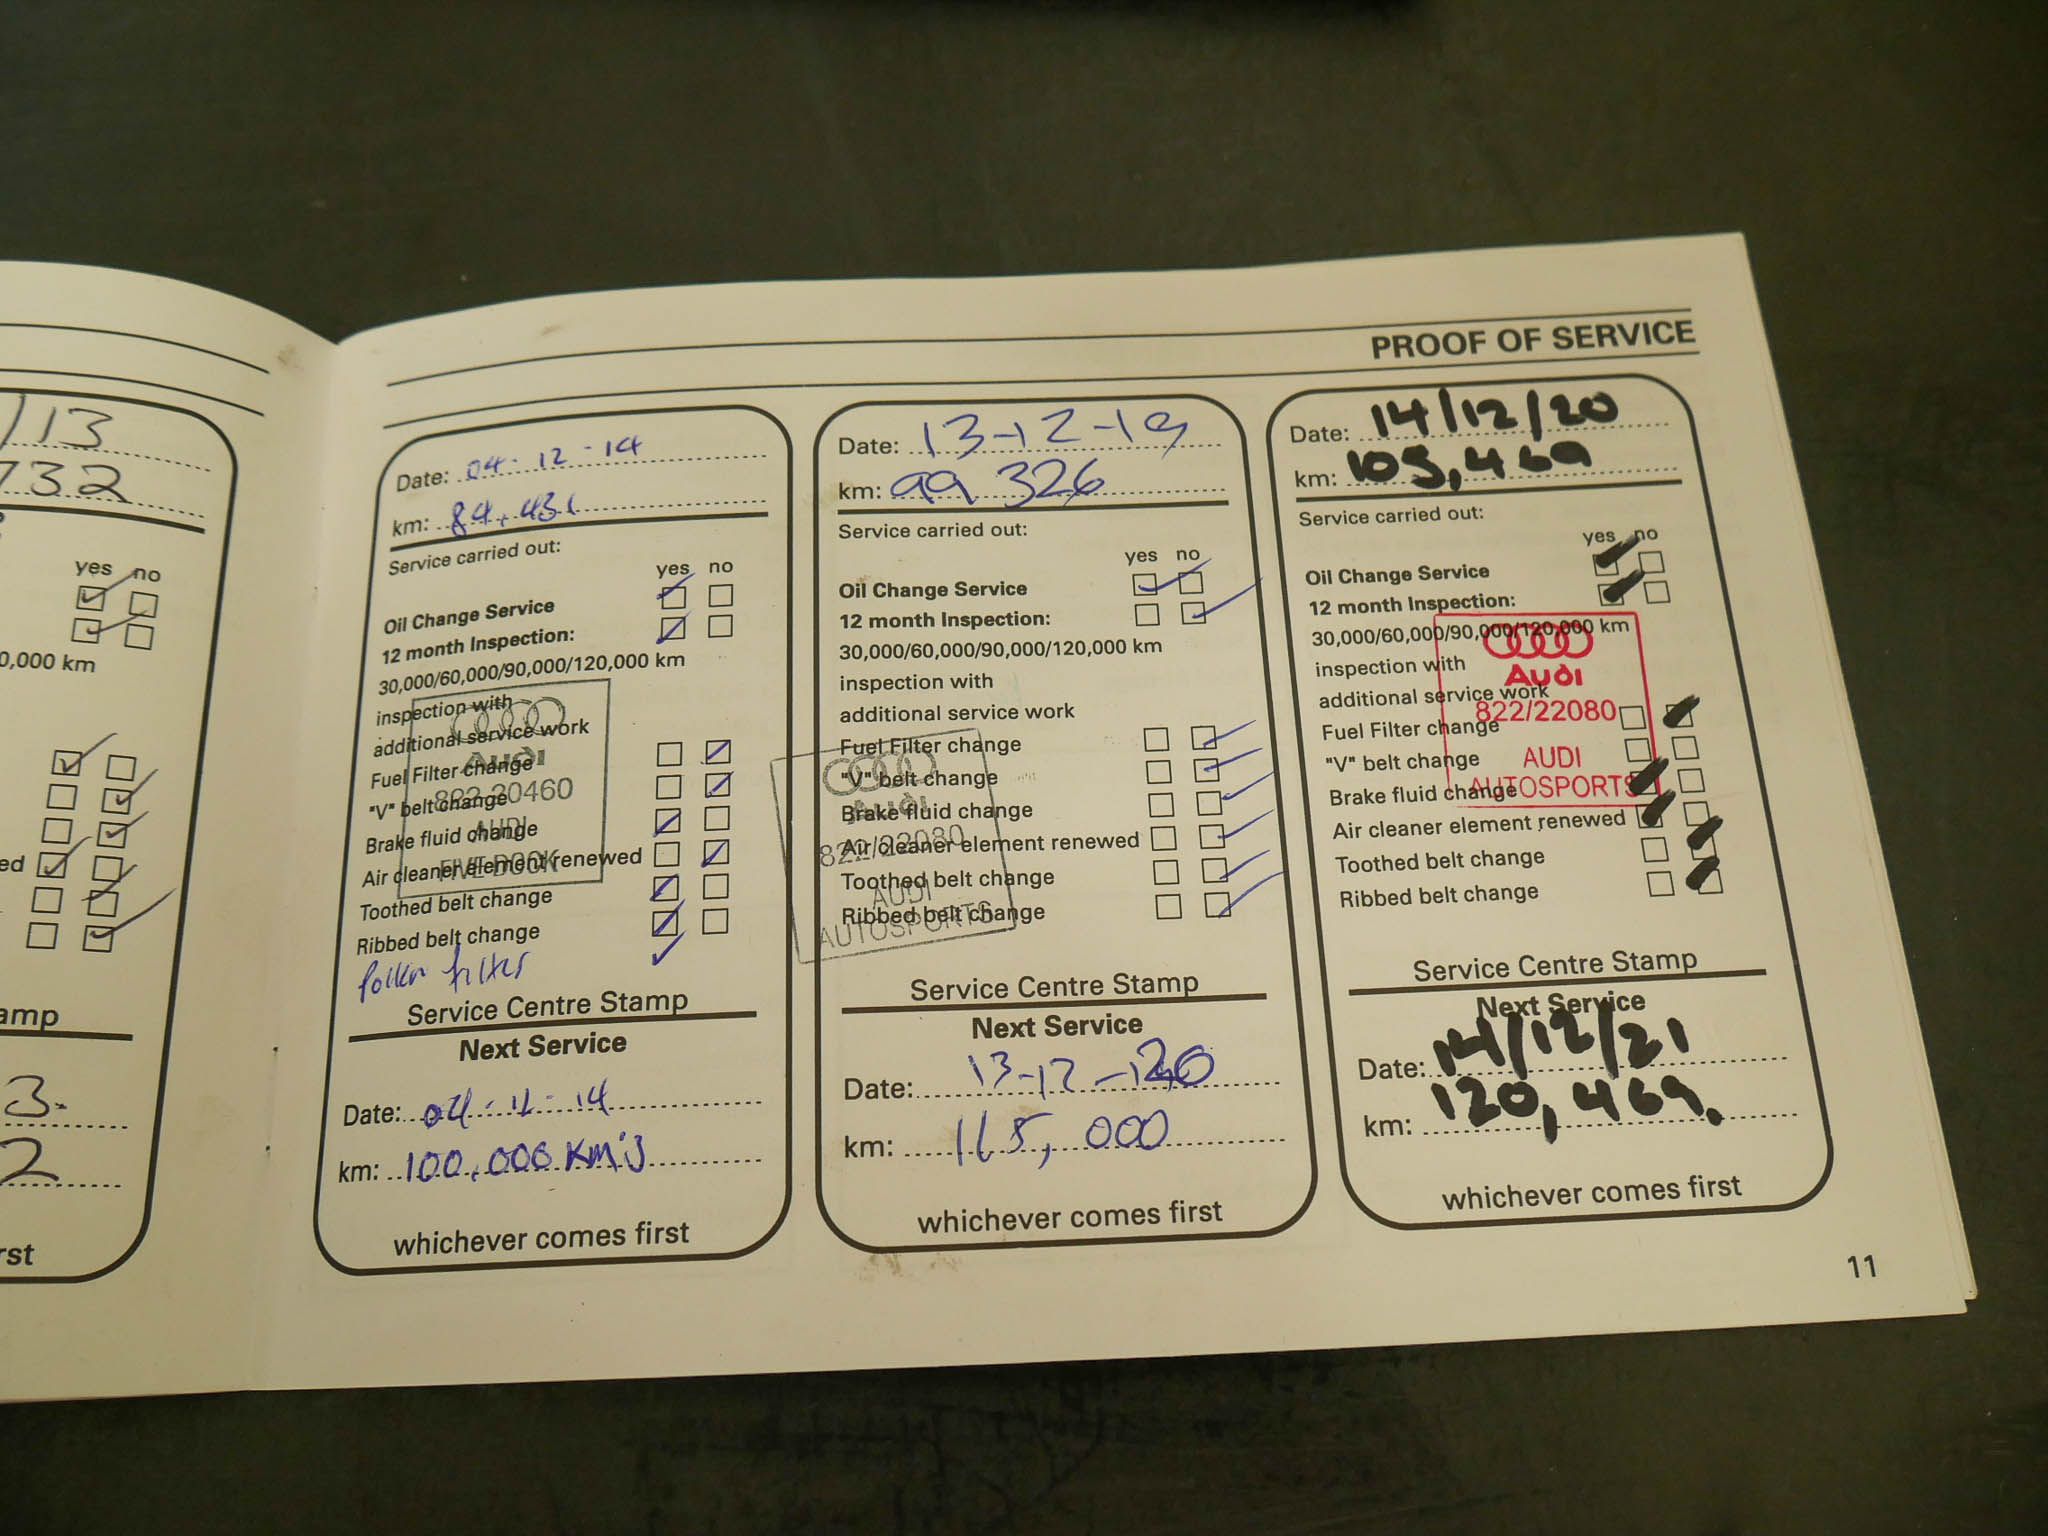 /13
732
yes no
0,000 km
ed
amp
3.
2
rst
PROOF OF SERVICE
Date: 04-12-14
km: 84,431
Service carried out:
yes no
Oil Change Service
12 month Inspection:
30,000/60,000/90,000/120,000 km
inspection with
additional service work
Fuel Filter change
"V" belt change
Brake fluid change
Air cleaner element renewed
Toothed belt change
Ribbed belt change
Pollen filter
Audi
822 20460
AUDI
Service Centre Stamp
Next Service
Date: 04-12-14
km: 100,000 Km's
whichever comes first
Date: 13-12-19
km: 99 326
Service carried out:
yes no
Oil Change Service
12 month Inspection:
30,000/60,000/90,000/120,000 km
inspection with
additional service work
Fuel Filter change
"V" belt change
Brake fluid change
Air cleaner element renewed
Toothed belt change
Ribbed belt change
Audi
822/22080
AUDI
AUTOSPORTS
Service Centre Stamp
Next Service
Date: 13-12-20
km: 115,000
whichever comes first
Date: 14/12/20
km: 105,469
Service carried out:
yes no
Oil Change Service
12 month Inspection:
30,000/60,000/90,000/120,000 km
inspection with
additional service work
Fuel Filter change
"V" belt change
Brake fluid change
Air cleaner element renewed
Toothed belt change
Ribbed belt change
Audi
822/22080
AUDI
AUTOSPORTS
Service Centre Stamp
Next Service
Date: 14/12/21
km: 120,469.
whichever comes first
11